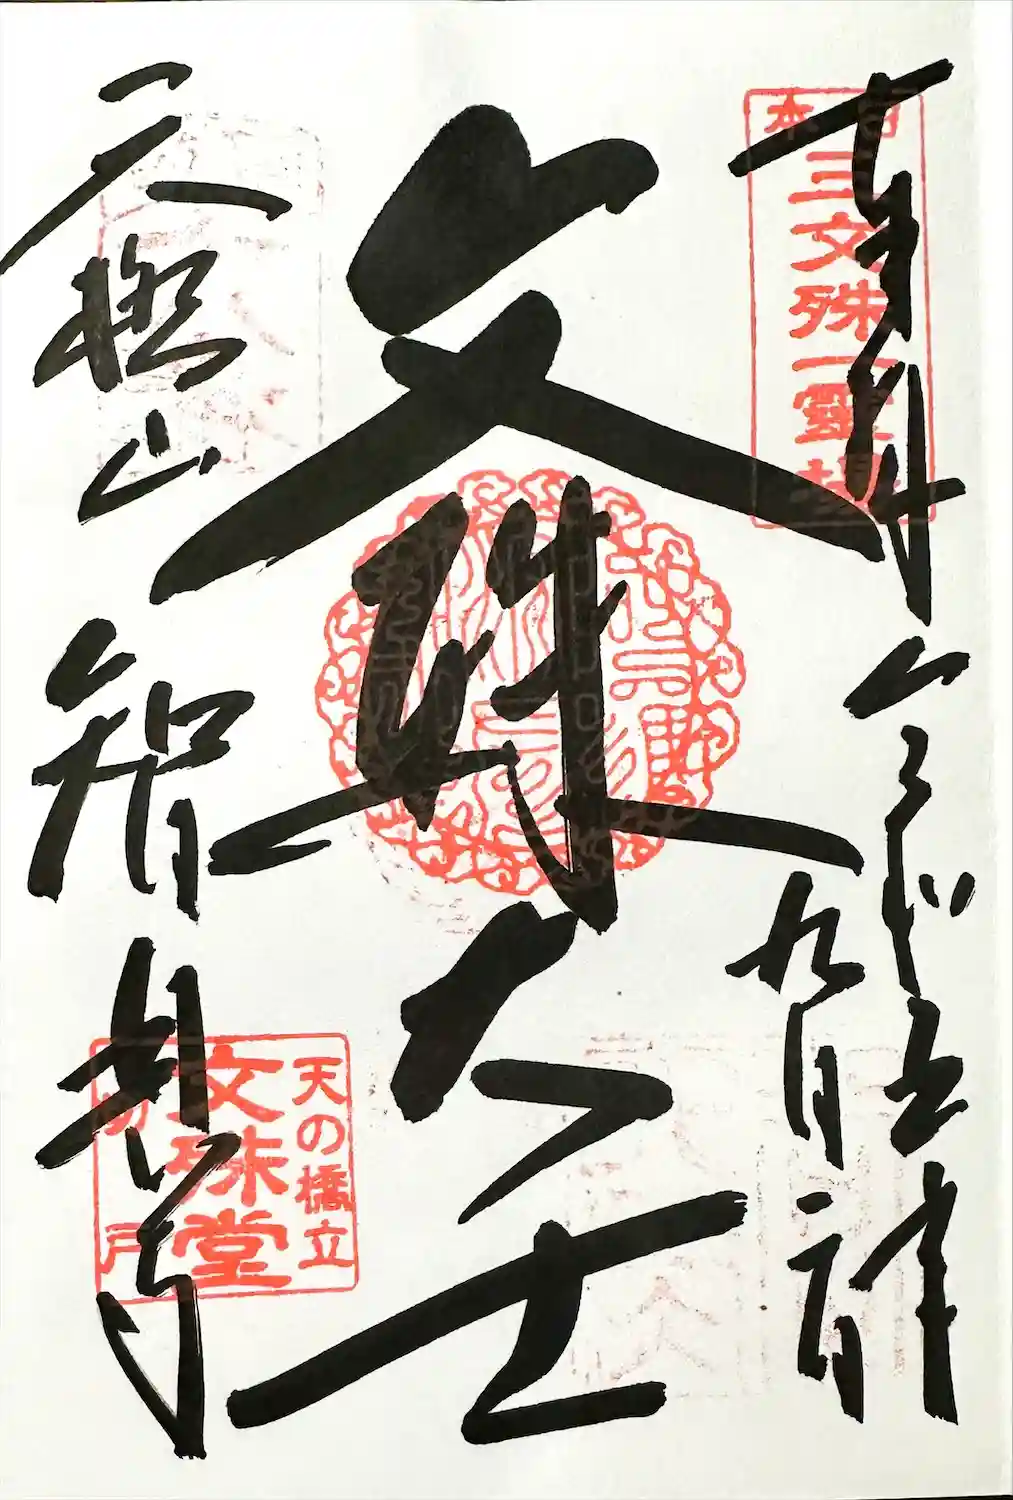 奉拝
令和五年
九月二日
日本三文殊一霊場
文殊大士
天橋山
智恩寺
天の橋立
文殊堂
切戸